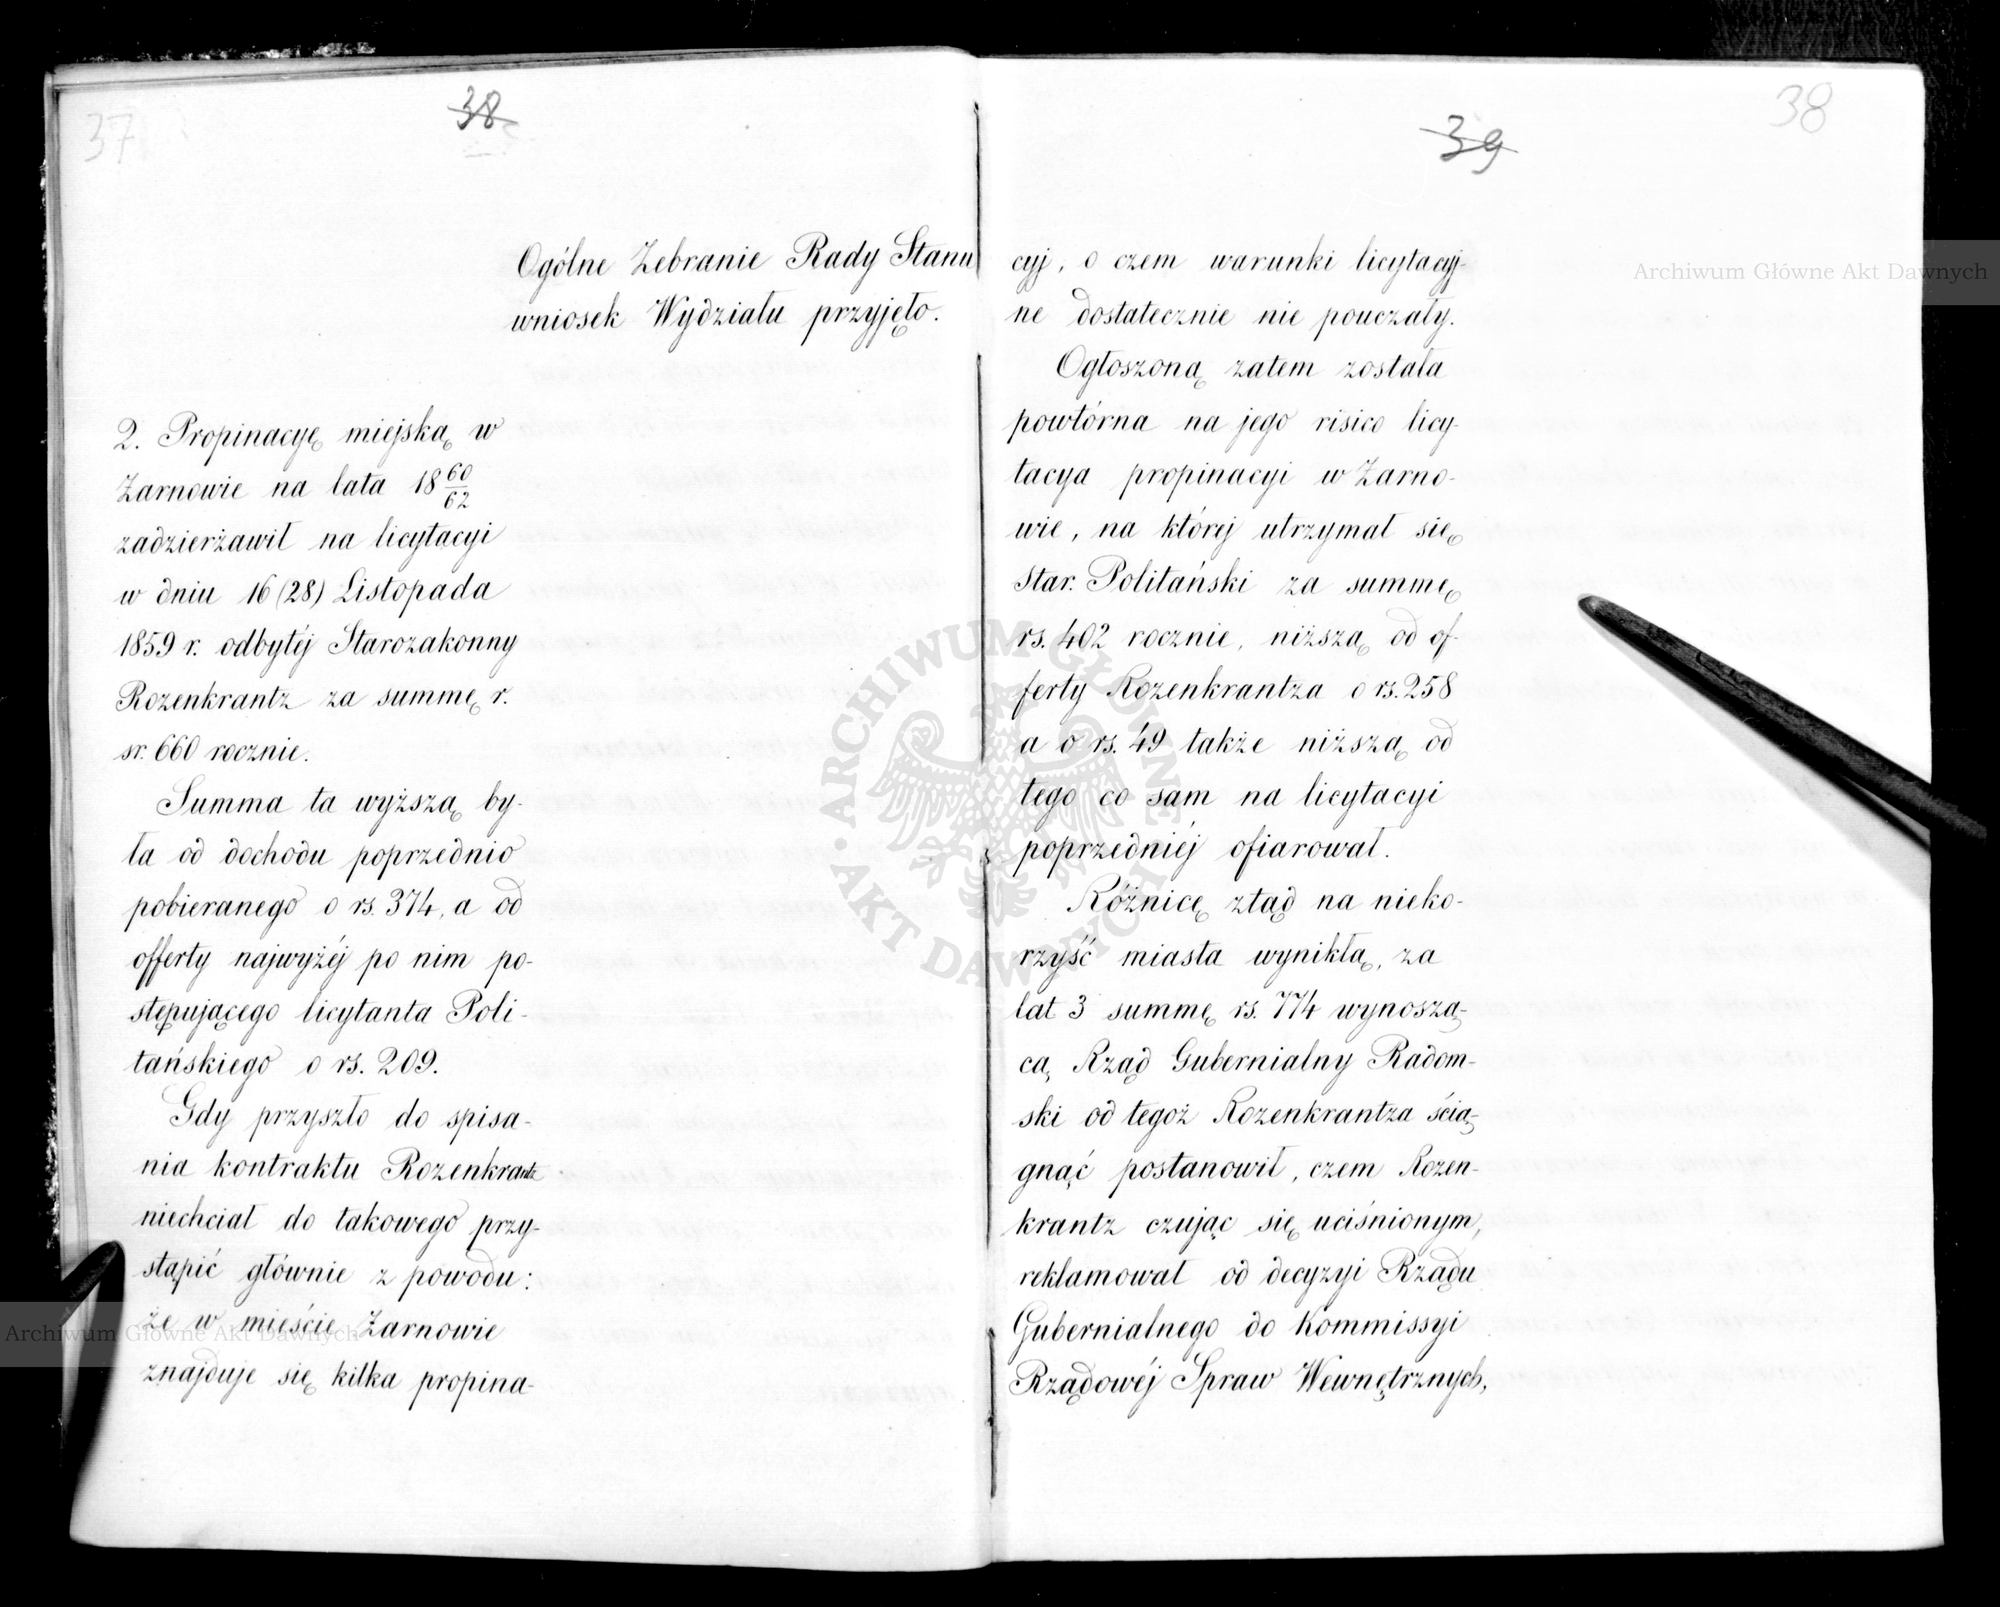 37
38
Ogólne Zebranie Rady Stanu
wniosek Wydziału przyjęło.
2. Propinacyę miejską w
Żarnowie na lata 18 60/62
zadzierżawił na licytacyi
w dniu 16 (28) Listopada
1859 r. odbytéj Starozakonny
Rozenkrantz za summę r.
sr. 660 rocznie.
Summa ta wyższą by-
ła od dochodu poprzednio
pobieranego o rs. 374, a od
offerty najwyżéj po nim po-
stępującego licytanta Poli-
tańskiego o rs. 209.
Gdy przyszło do spisa-
nia kontraktu Rozenkrantz
niechciał do takowego przy-
stąpić głównie z powodu:
że w mieście Żarnowie
znajduje się kilka propina-
38
39
cyj, o czem warunki licytacyj-
ne dostatecznie nie pouczały.
Ogłoszoną zatem została
powtórna na jego risico licy-
tacya propinacyi w Żarno-
wie, na której utrzymał się
Star. Politański za summę
rs. 402 rocznie, niższą od of-
ferty Rozenkrantza o rs. 258
a o rs. 49 także niższą od
tego co sam na licytacyi
poprzedniéj ofiarował.
Różnicę ztąd na nieko-
rzyść miasta wynikłą, za
lat 3 summę rs. 774 wynoszą-
cą, Rząd Gubernialny Radom-
ski od tegoż Rozenkrantza ścią-
gnąć postanowił, czem Rozen-
krantz czując się uciśnionym,
reklamował od decyzyi Rządu
Gubernialnego do Kommissyi
Rządowéj Spraw Wewnętrznych,
Archiwum Główne Akt Dawnych
Archiwum Główne Akt Dawnych
ARCHIWUM GŁÓWNE · AKT DAWNYCH ·